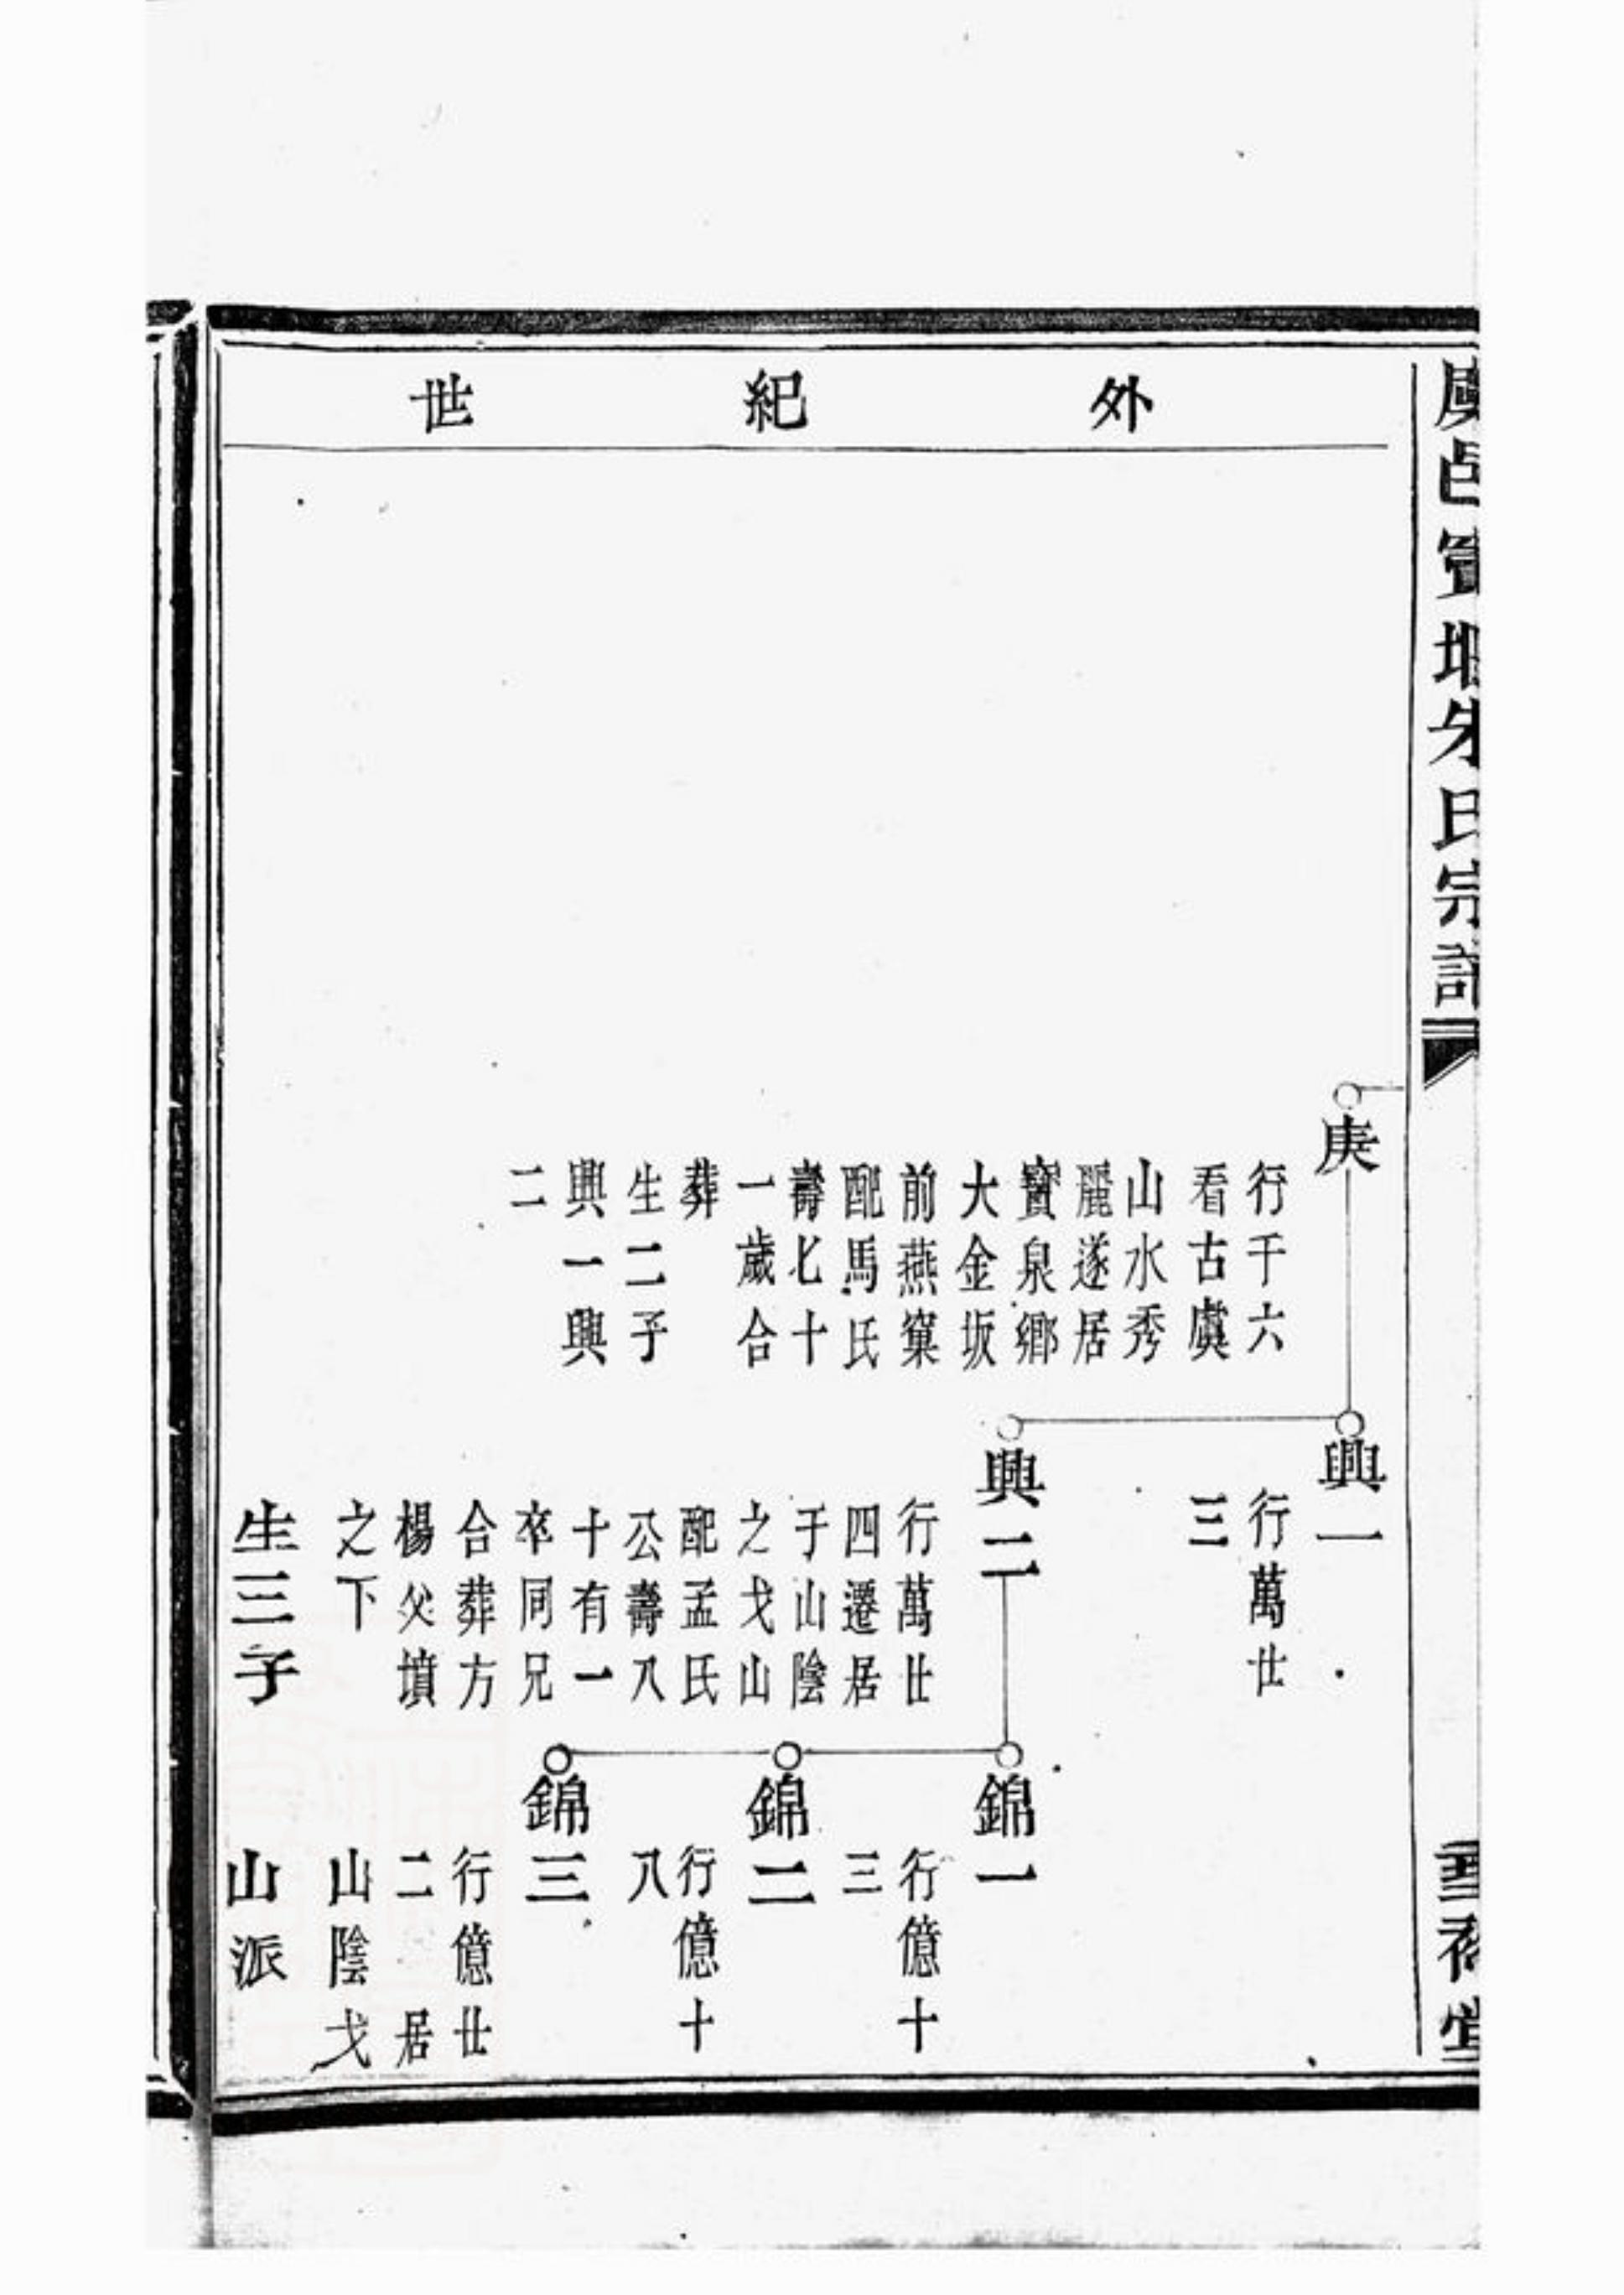 朱氏宗譜
外紀世
庚
行千六
看古虞
山水秀
麗遂居
寶泉鄉
大金坂
前燕窠
配馬氏
壽匕十
一歲合
葬
生二子
興一興
二
興一
行萬廿
三
興二
行萬廿
四遷居
于山陰
之戈山
配孟氏
公壽八
十有一
卒同兄
合葬方
楊父墳
之下
生三子
錦一
行億十
三
錦二
行億十
八
錦三
行億廿
二居
山陰戈
山派